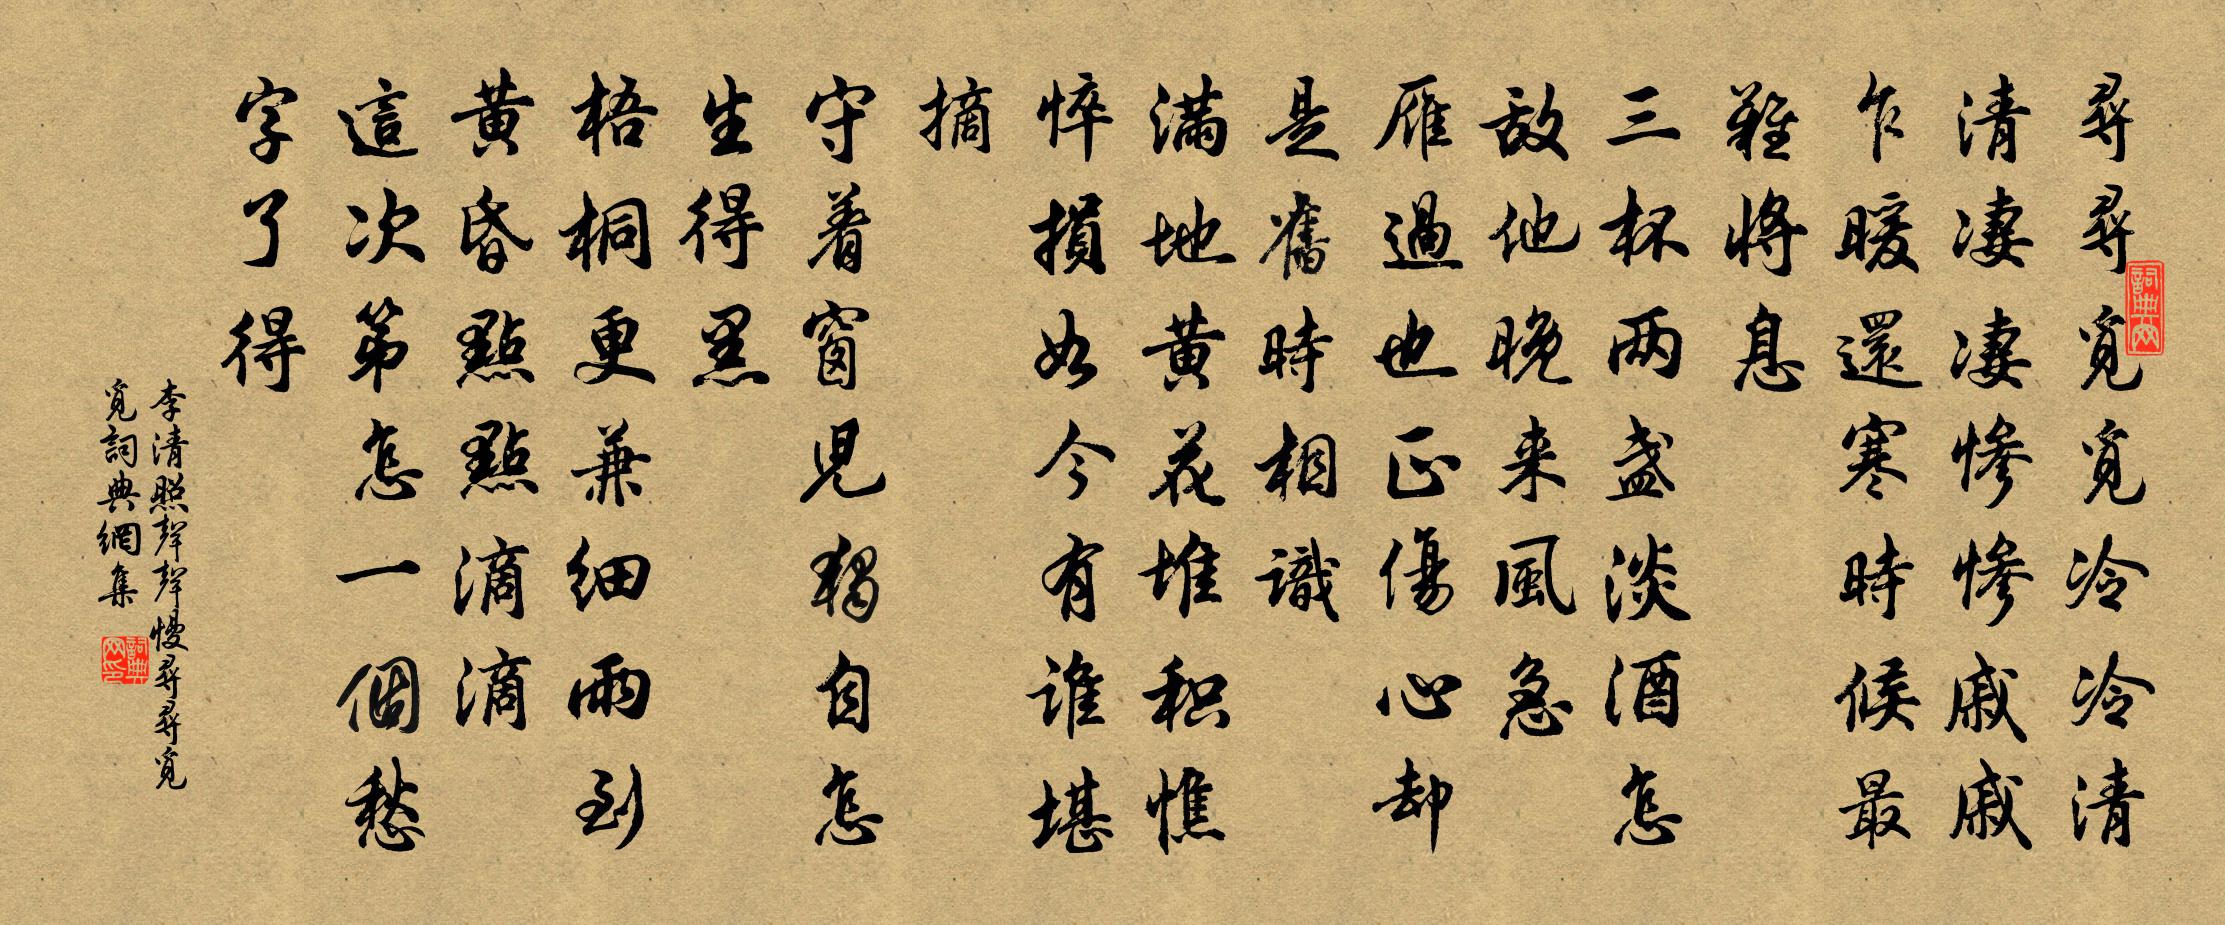 尋尋覓覓冷冷清
清凄凄慘慘戚戚
乍暖還寒時候最
難將息
三杯两盏淡酒怎
敌他晚来風急
雁過也正傷心却
是舊時相識
满地黄花堆积憔
悴損如今有谁堪
摘
守着窗兒独自怎
生得黑
梧桐更兼细雨到
黄昏點點滴滴
這次第怎一個愁
字了得
李清照聲聲慢尋尋覓
覓詞典網集
詞典网
詞典
网印